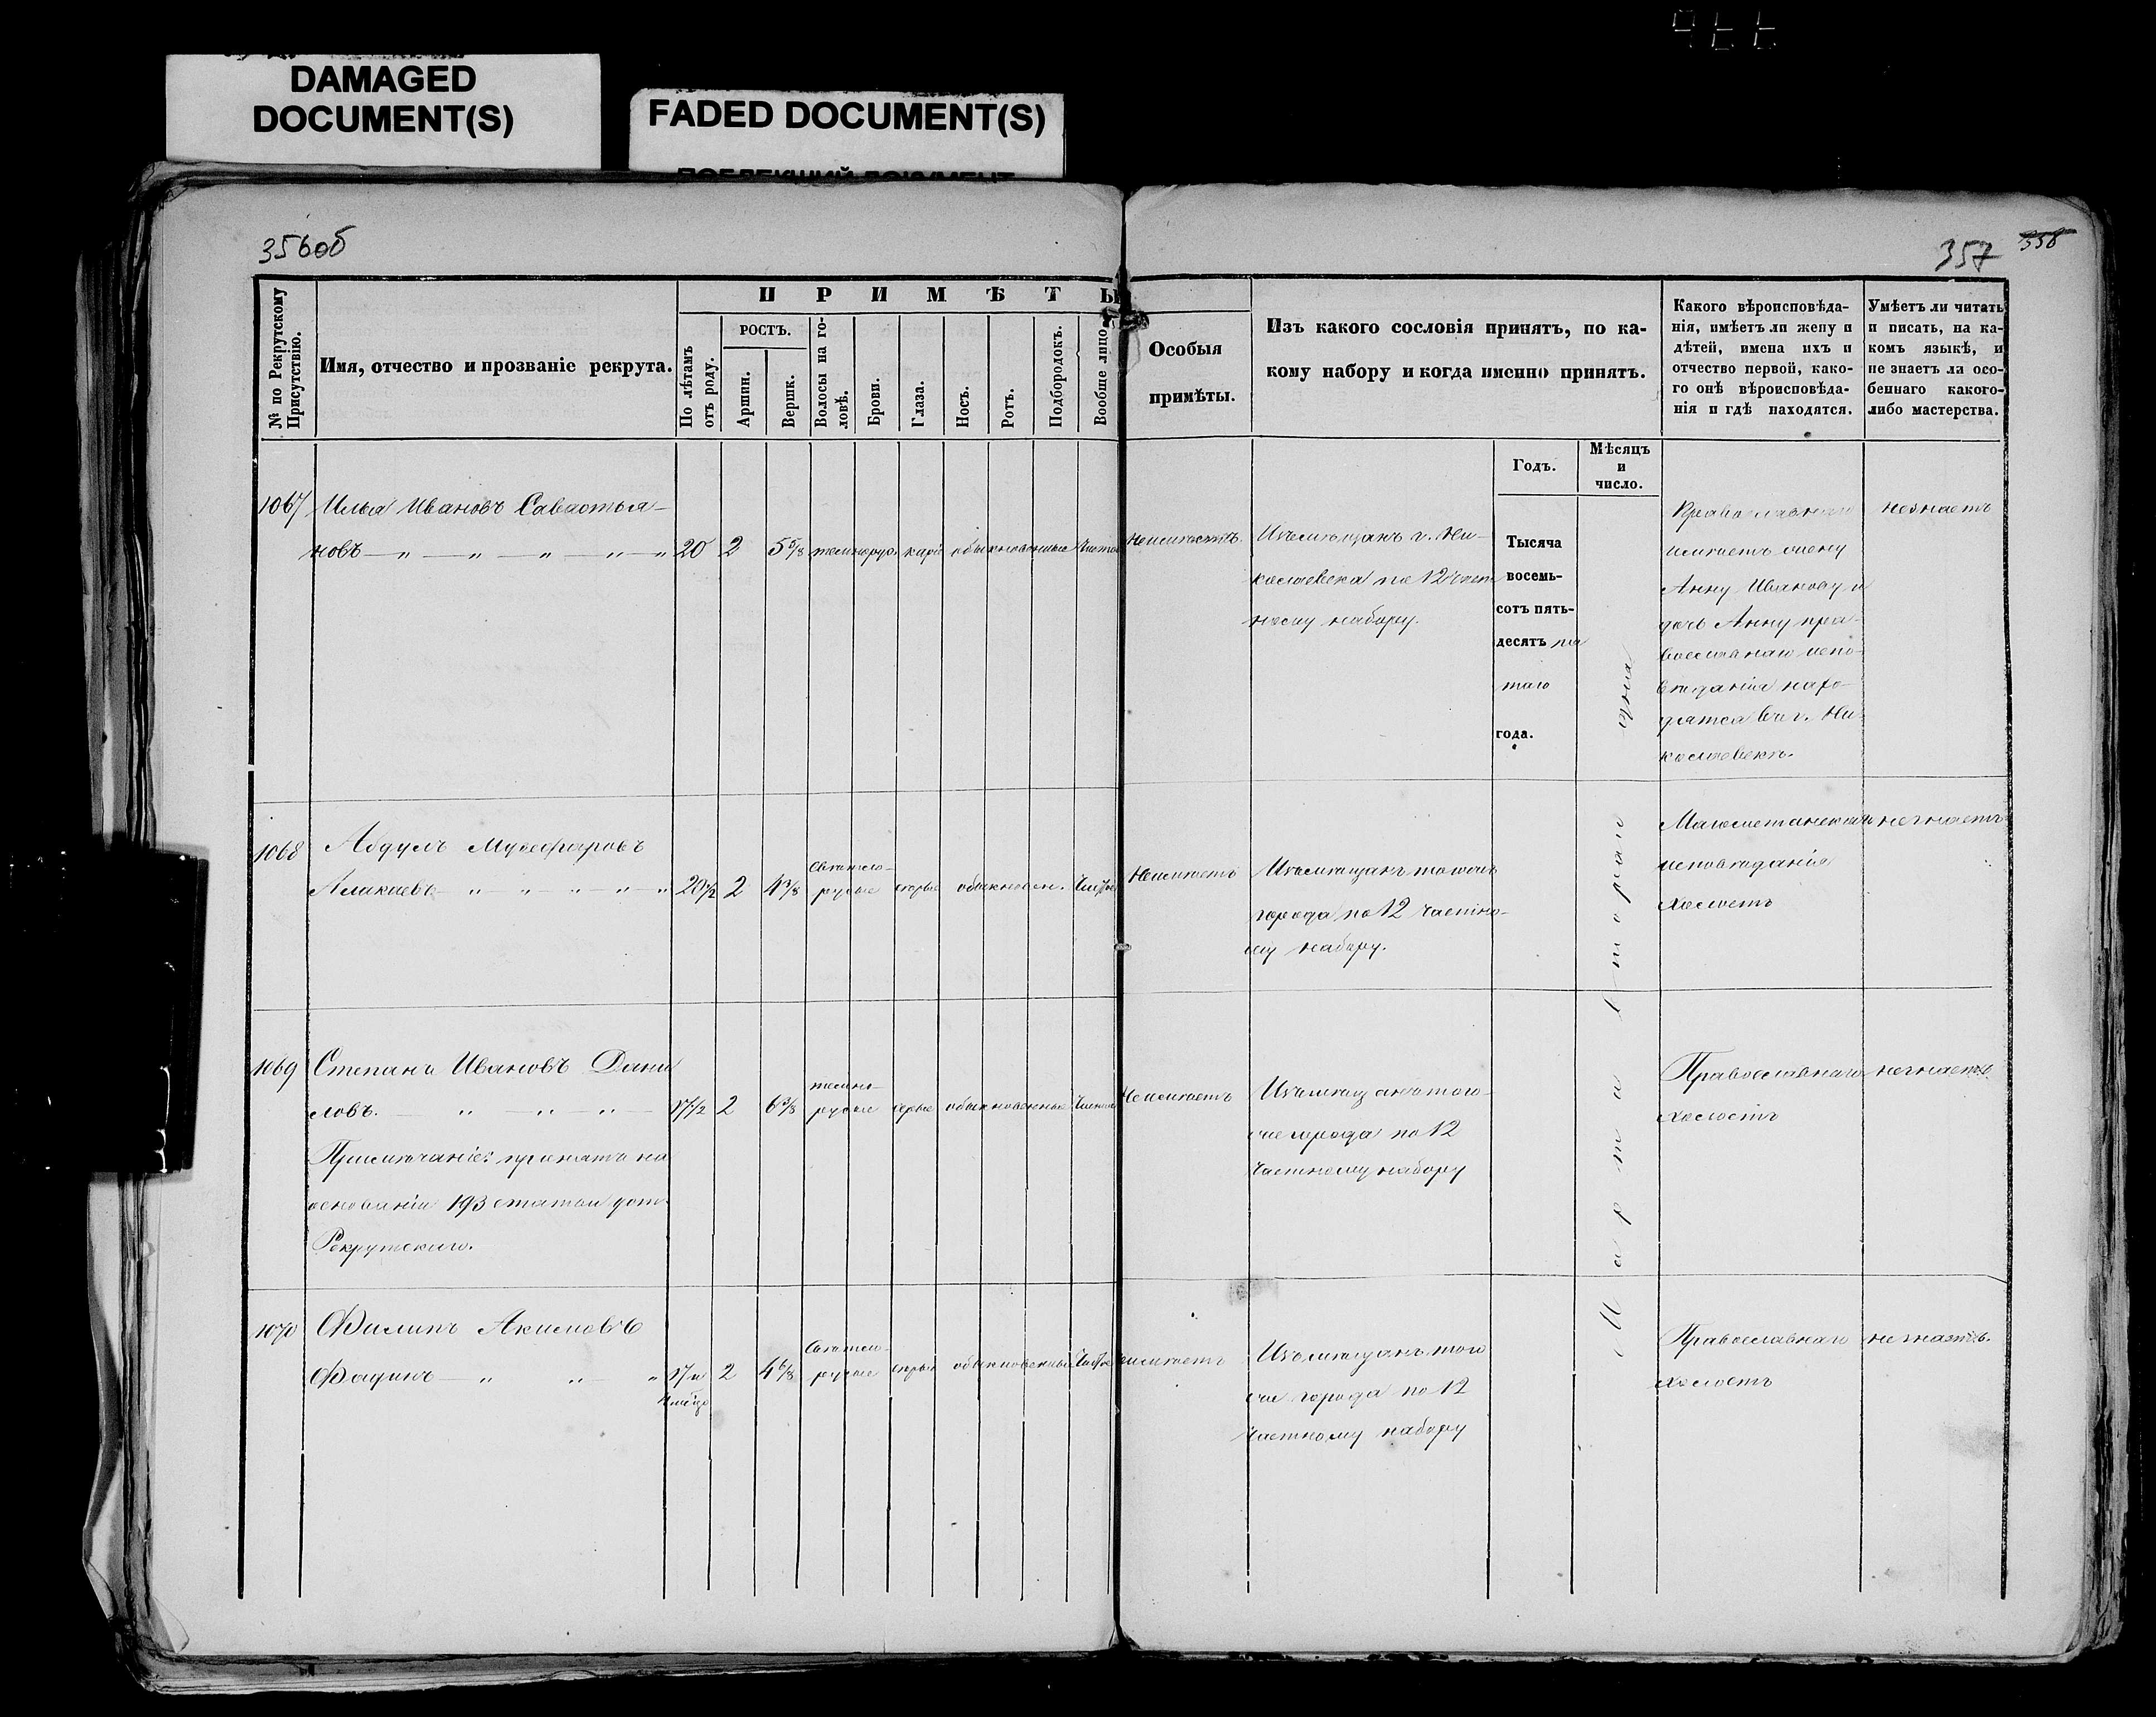 DAMAGED
DOCUMENT(S)
FADED DOCUMENT(S)
356об
357 358
№ по Рекрутскому
Присутствію.
Имя, отчество и прозваніе рекрута.
ПРИМѢТЫ
По лѣтамъ
отъ роду.
РОСТЪ.
Аршин.
Вершк.
Волосы на го-
ловѣ.
Брови.
Глаза.
Носъ.
Ротъ.
Подбородокъ.
Вообще лицо.
Особыя
примѣты.
Изъ какого сословія принятъ, по ка-
кому набору и когда именно принятъ.
Какого вѣроисповѣда-
нія, имѣетъ ли жену и
дѣтей, имена ихъ и
отчество первой, како-
го онѣ вѣроисповѣда-
нія и гдѣ находятся.
Умѣетъ ли читать
и писать, на ка-
комъ языкѣ, и
не знаетъ ли осо-
беннаго какого-
либо мастерства.
Годъ.
Мѣсяцъ
и
число.
1067 Илья Ивановъ Савастья-
новъ 20 2 5 5/8 темнорус. каріе обыкновенные чистое
Неимѣетъ.
Изъ мѣщанъ г. Ни-
колаевска по 12 част
ному набору.
Тысяча
восемь-
сотъ пять-
десятъ пя
таго
года.
Марта втораго дня
Православнаго
имѣетъ жену
Анну Иванову и
дочь Анну пра-
вославнаго испо-
вѣданія нахо-
дятся въ г. Ни-
колаевскѣ.
незнаетъ
1068 Абдулъ Музафаровъ
Аликаевъ 20 1/2 2 4 3/8 свѣтло-
русые сѣрые обыкновен. чистое
Неимѣетъ
Изъ мѣщанъ тогожъ
города по 12 частно-
му набору.
Магометанскаго
исповѣданія
холостъ
незнаетъ
1069 Степанъ Ивановъ Дани
ловъ. 17 1/2 2 6 3/8 темно-
русые сѣрые обыкновенные чистое
Примѣчаніе: принятъ на
основаніи 193 статьи уст.
Рекрутскаго.
Неимѣетъ
Изъ мѣщанъ того-
же города по 12
частному набору
Православнаго
холостъ
незнаетъ.
1070 Филипъ Акимовъ
17 и 2 4 6/8 свѣтло-
русые сѣрые обыкновенные чистое
Неимѣетъ
Изъ мѣщанъ того
же города по 12
частному набору
Православнаго
холостъ
незнаетъ.